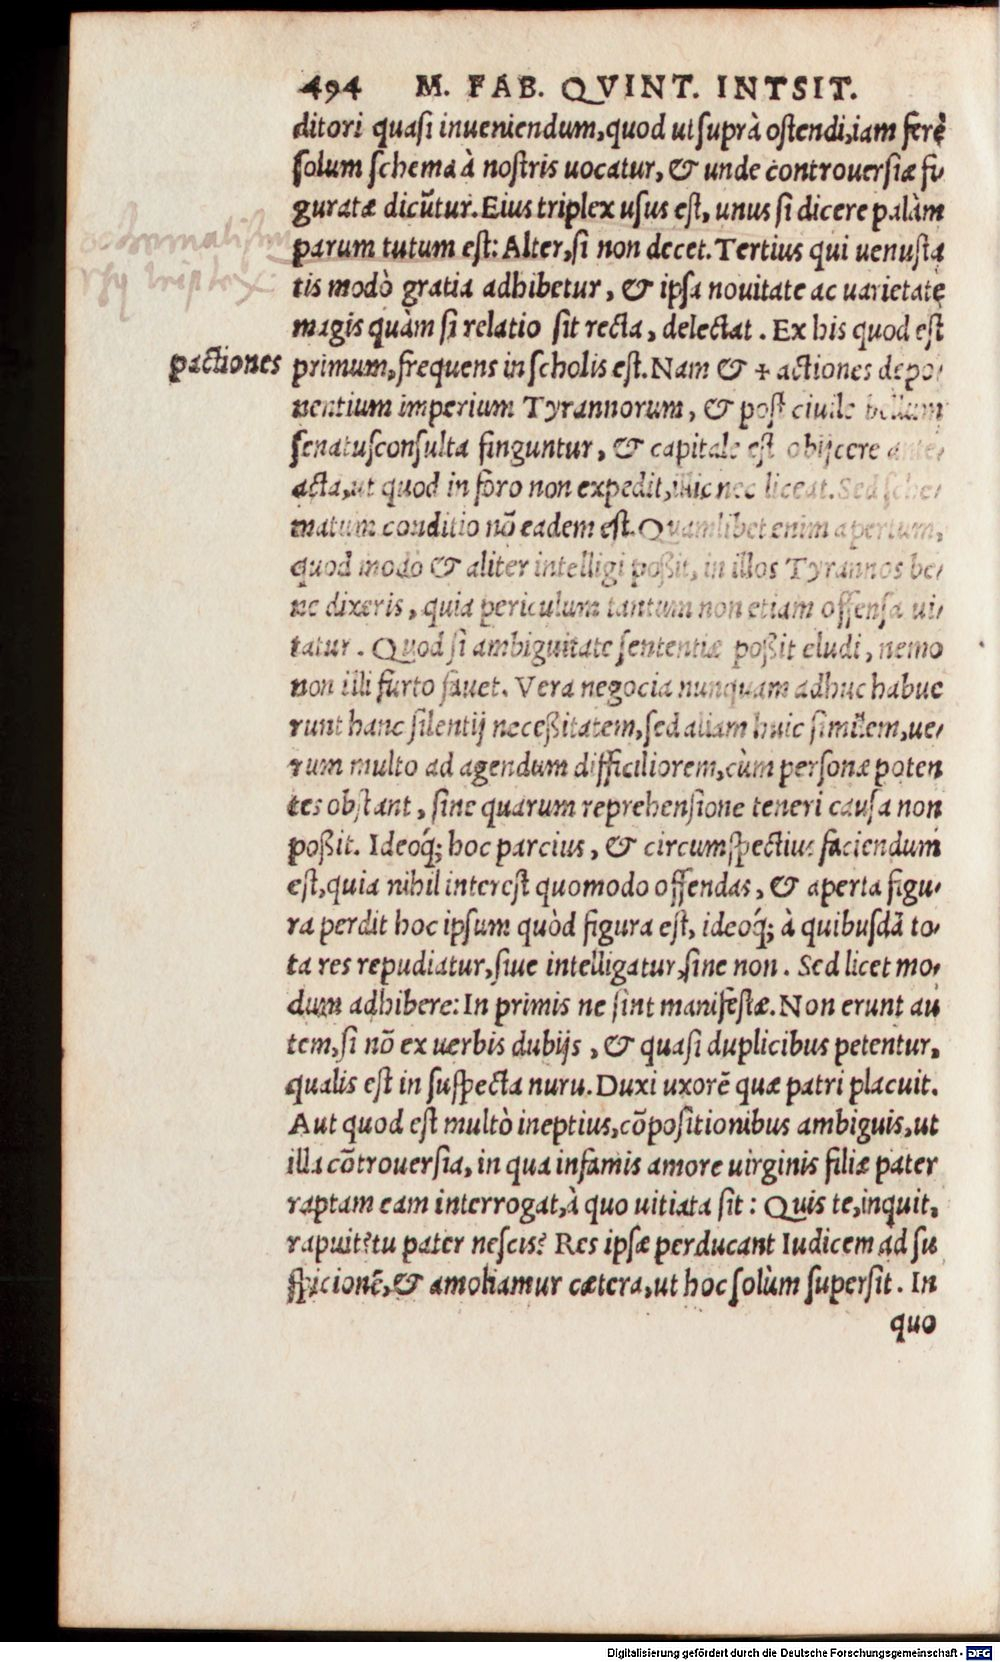 494 M. FAB. QVINT. INTSIT.
ditori quasi inueniendum, quod ut suprà ostendi, iam ferè
solum schema à nostris uocatur, & unde controuersiæ fi-
guratæ dicũtur. Eius triplex usus est, unus si dicere palàm
parum tutum est: Alter, si non decet. Tertius qui uenusta
tis modò gratia adhibetur, & ipsa nouitate ac uarietate
magis quàm si relatio sit recta, delectat. Ex his quod est
pactiones
primum, frequens in scholis est. Nam & + actiones depo-
nentium imperium Tyrannorum, & post ciuile bellum
senatusconsulta finguntur, & capitale est obijcere ante-
acta, ut quod in foro non expedit, illic nec liceat. Sed sche-
matum conditio nõ eadem est. Quamlibet enim apertum,
quod modo & aliter intelligi poßit, in illos Tyrannos be-
ne dixeris, quia periculum tantum non etiam offensa ui-
tatur. Quod si ambiguitate sententiæ poßit eludi, nemo
non illi furto fauet. Vera negocia nunquam adhuc habue
runt hanc silentij neceßitatem, sed aliam huic similem, ue-
rum multo ad agendum difficiliorem, cùm personæ poten
tes obstant, sine quarum reprehensione teneri causa non
poßit. Ideoq́; hoc parcius, & circumspectius faciendum
est, quia nihil interest quomodo offendas, & aperta figu-
ra perdit hoc ipsum quòd figura est, ideoq́; à quibusdã to-
ta res repudiatur, siue intelligatur, sine non. Sed licet mo-
dum adhibere: In primis ne sint manifestæ. Non erunt au
tem, si nõ ex uerbis dubijs, & quasi duplicibus petentur,
qualis est in suspecta nuru. Duxi uxorẽ quæ patri placuit.
Aut quod est multò ineptius, cõpositionibus ambiguis, ut
illa cõtrouersia, in qua infamis amore uirginis filiæ pater
raptam eam interrogat, à quo uitiata sit: Quis te, inquit,
rapuit? tu pater nescis? Res ipsæ perducant Iudicem ad su
spicionẽ, & amoliamur cætera, ut hoc solùm supersit. In
quo
triplex
Digitalisierung gefördert durch die Deutsche Forschungsgemeinschaft - DFG